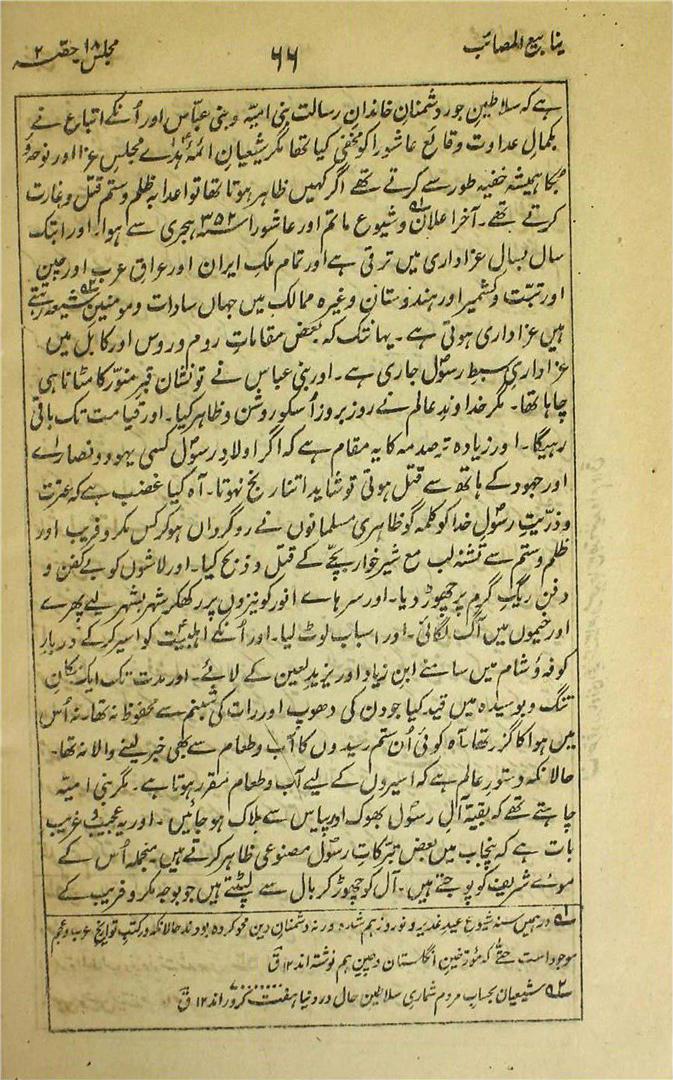 ینابیع المصائب
۶۶
مجلس ۱۸ حصّہ ۲
ہے کہ سلاطین جور دشمنان خاندان رسالت بنی امیّہ و بنی عبّاس اور اُنکے اتباع نے
بکمال عداوت وقائع عاشورا کو مخفی کیا تھا مگر شیعیان ائمۂ ہدٰے مجلس عزا اور نوحہ و
بکا ہمیشہ خفیہ طور سے کرتے تھے اگر کہیں ظاہر ہوتا تھا تو اعدا بہ ظلم و ستم قتل و غارت
کرتے تھے۔ آخر اعلان و شیوع ماتم اور عاشورا ۳۵۲ ہجری سے ہوا۔ اور ابتک
سال بسال عزاداری میں ترقی ہے اور تمام ملک ایران اور عراق عرب اور چین
اور تبّت و کشمیر اور ہندوستان وغیرہ ممالک میں جہاں سادات و مومنین شیعہ رہتے
ہیں عزاداری ہوتی ہے۔ یہانتک کہ بعض مقامات روم و روس اور کابل میں
عزاداری سبط رسولؐ جاری ہے۔ اور بنی عباس نے تو نشان قبر منوّر کا مٹانا ہی
چاہا تھا۔ مگر خداوند عالم نے روز بروز اُسکو روشن و ظاہر کیا۔ اور قیامت تک باقی
رہیگا۔ اور زیادہ تر صدمہ کا یہ مقام ہے کہ اگر اولاد رسولؐ کسی یہود و نصارٰے
اور جہود کے ہاتھ سے قتل ہوتی تو شاید اتنا رنج نہوتا۔ آہ کیا غضب ہے کہ عترت
و ذرّیت رسولؐ خدا کو کلمہ گو ظاہری مسلمانوں نے روگرداں ہو کر کس مکر و فریب اور
ظلم و ستم سے تشنہ لب مع شیرخوار بچّے کے قتل و ذبح کیا۔ اور لاشوں کو بے کفن و
دفن ریگ گرم پر چھوڑ دیا۔ اور سرہاے انور کو نیزوں پر رکھکر شہر بشہر لیے پھرے
اور خیموں میں آگ لگائی۔ اور اسباب لوٹ لیا۔ اور اُنکے اہلبیتؑ کو اسیر کرکے دربار
کوفہ و شام میں سامنے ابن زیاد اور یزید لعین کے لائے۔ اور مدت تک ایک مکان
تنگ و بوسیدہ میں قید کیا جو دن کی دھوپ اور رات کی شبنم سے محفوظ نہ تھا۔ نہ اُس
میں ہوا کا گزر تھا۔ آہ کوئی اُن ستم رسیدوں کا آب و طعام سے بھی خبر لینے والا نہ تھا۔
حالانکہ دستور عالم ہے کہ اسیروں کے لیے آب و طعام مقرر ہوتا ہے۔ مگر بنی امیّہ
چاہتے تھے کہ بقیۃ آل رسولؐ بھوک اور پیاس سے ہلاک ہو جائیں۔ اور یہ عجیب و غریب
بات ہے کہ پنجاب میں بعض تبرکات رسولؐ مصنوعی ظاہر کرتے ہیں۔ منجملہ اُس کے
موے شریف کو پوجتے ہیں۔ آل کو چھوڑ کر بال سے لپٹتے ہیں جو بوجہ مکر و فریب کے
۱؎ درہمیں سنہ شیوع عید غدیر و نوروز ہم شدہ ورنہ دشمنان دین محو کردہ بودند حالانکہ در کتب تواریخ عرب و عجم
موجود است حتّٰے کہ مؤرخین انگلستان و چین ہم نوشتہ اند ۱۲ ق
۲؎ شیعیان بحساب مردم شماری سلاطین حال در دنیا ہفت کروڑ اند ۱۲ ق